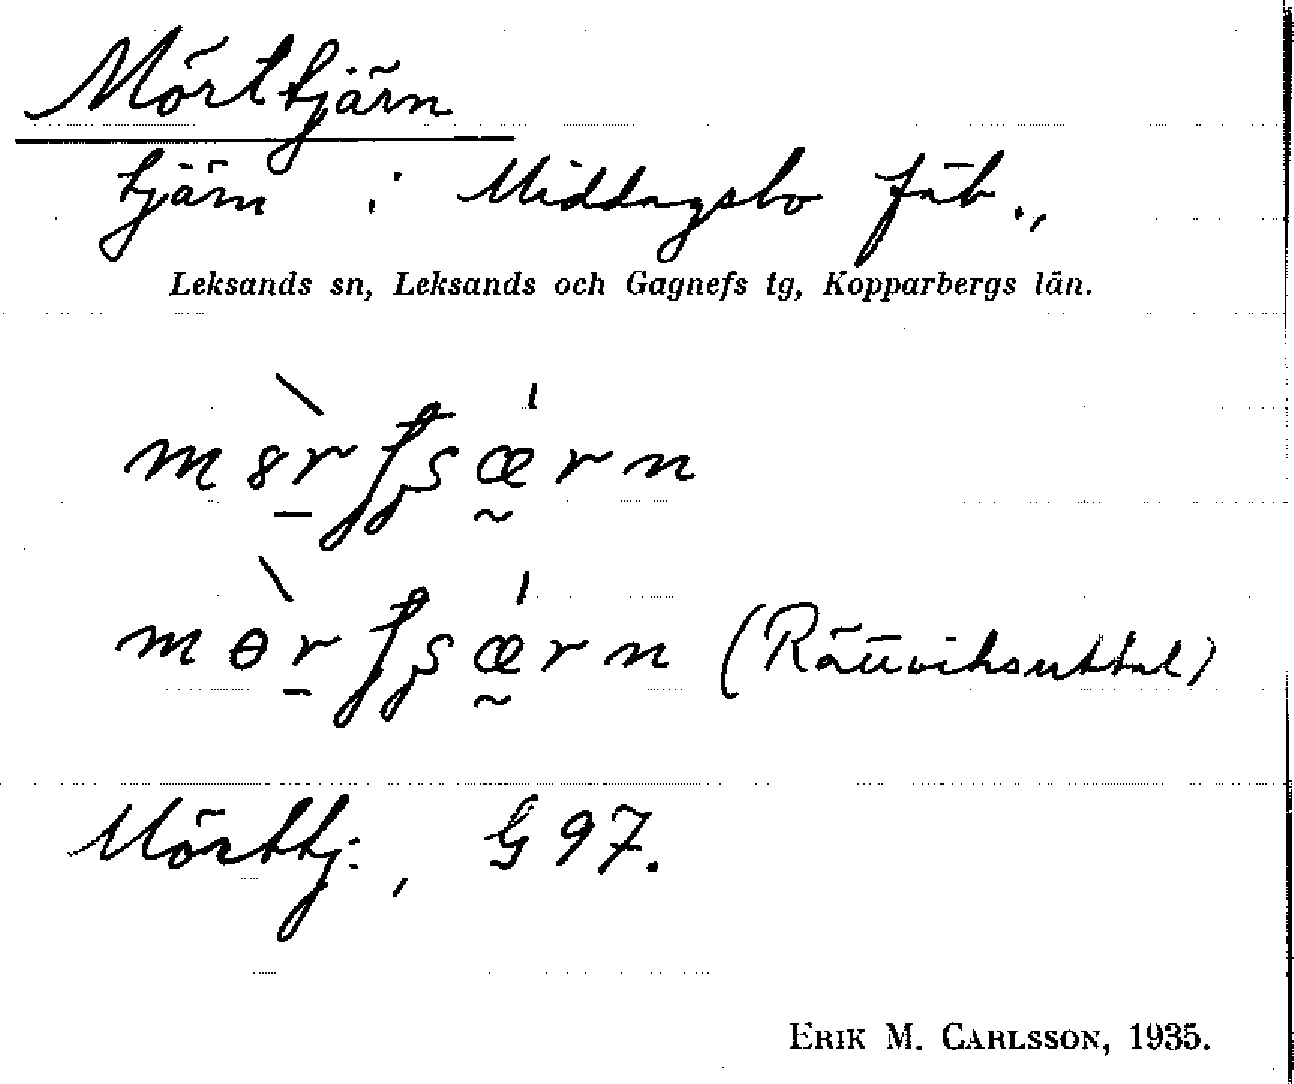 Mörttjärn
tjärn i Middagsbo fäb.,
Leksands sn, Leksands och Gagnefs tg, Kopparbergs län.
(Rättviksuttal)
Mörttj:, G 97.
ERIK M. CARLSSON, 1935.